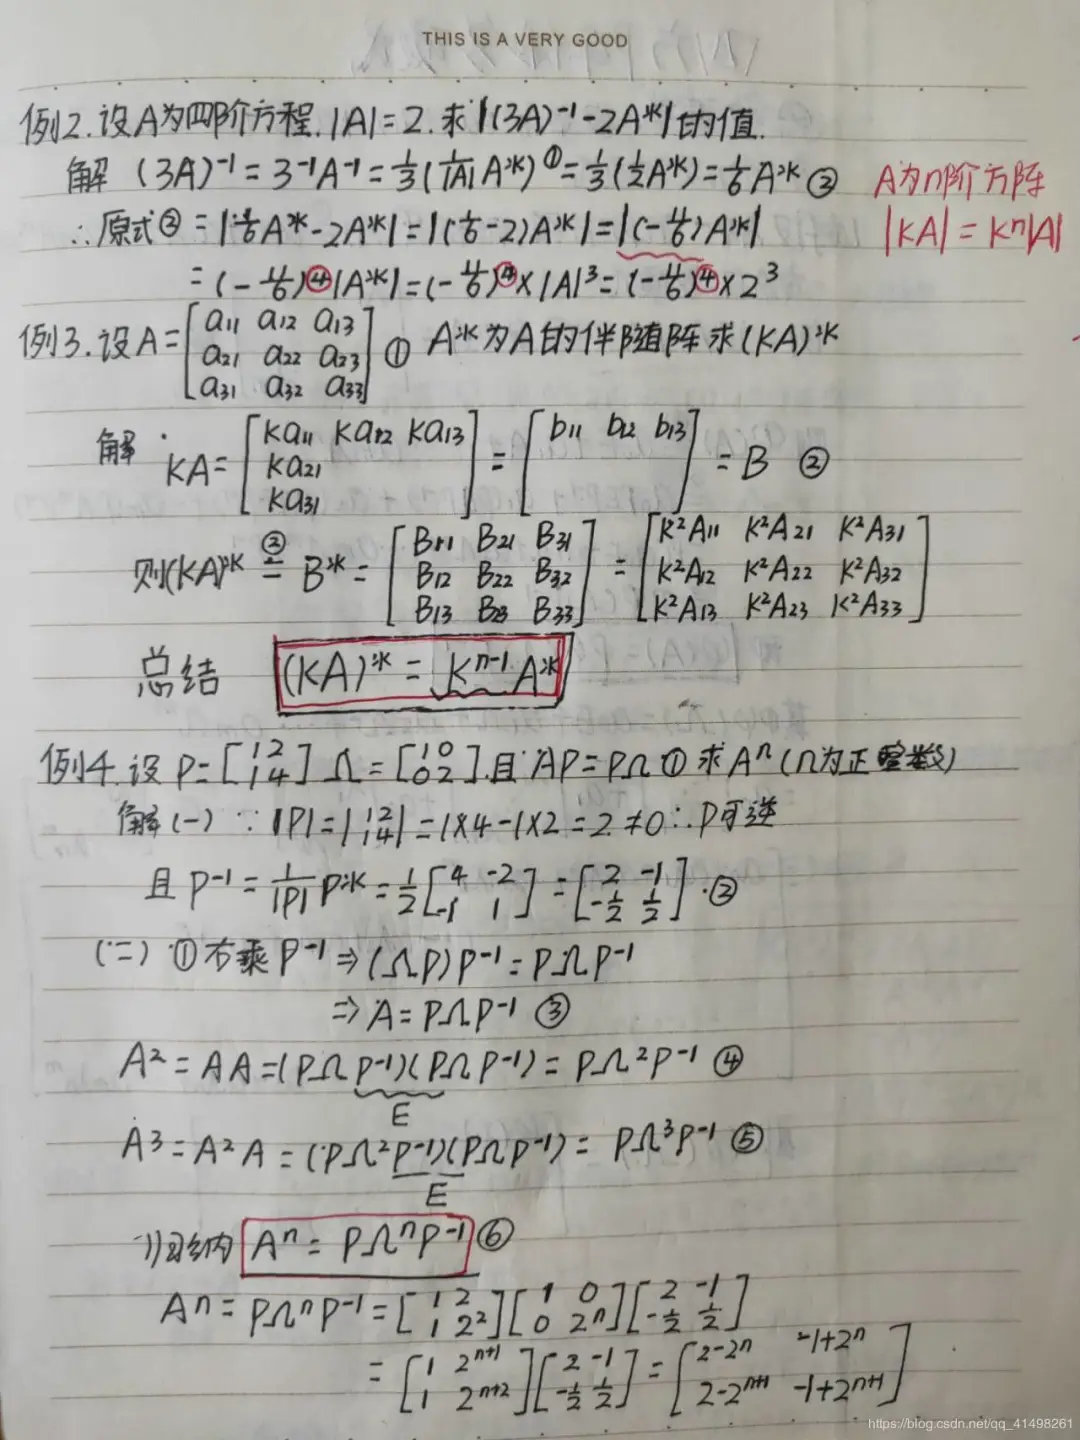 THIS IS A VERY GOOD
例2.设A为四阶方程.|A|=2.求|(3A)⁻¹-2A*|的值.
解 (3A)⁻¹=3⁻¹A⁻¹=1/3(1/|A| A*)①=1/3(1/2A*)=1/6A* ②
A为n阶方阵
∴原式②=|1/6A*-2A*|=|(1/6-2)A*|=|(-11/6)A*|
|KA|=Kⁿ|A|
=(-11/6)④|A*|=(-11/6)④×|A|³=(-11/6)④×2³
例3.设A=[a11 a12 a13; a21 a22 a23; a31 a32 a33] ① A*为A的伴随阵求(KA)*
解 KA=[Ka11 Ka12 Ka13; Ka21; Ka31]=[b11 b12 b13]=B ②
则(KA)*②=B*=[B11 B21 B31; B12 B22 B32; B13 B23 B33]=[K²A11 K²A21 K²A31; K²A12 K²A22 K²A32; K²A13 K²A23 K²A33]
总结 (KA)*=Kⁿ⁻¹A*
例4.设P=[1 2; 1 4] Ω=[1 0; 0 2].且AP=PΩ① 求Aⁿ(n为正整数)
解(一) ∵|P|=|1 2; 1 4|=1×4-1×2=2≠0∴P可逆
且P⁻¹=1/|P| P*=1/2[4 -2; -1 1]=[2 -1; -1/2 1/2].②
(二) ①右乘P⁻¹⇒(ΩP)P⁻¹=PΩP⁻¹
⇒A=PΩP⁻¹ ③
A²=AA=(PΩP⁻¹)(PΩP⁻¹)=PΩ²P⁻¹ ④
E
A³=A²A=(PΩ²P⁻¹)(PΩP⁻¹)=PΩ³P⁻¹ ⑤
E
归纳 Aⁿ=PΩⁿP⁻¹ ⑥
Aⁿ=PΩⁿP⁻¹=[1 2; 1 2²][1 0; 0 2ⁿ][2 -1; -1/2 1/2]
=[1 2ⁿ⁺¹; 1 2ⁿ⁺²][2 -1; -1/2 1/2]=[2-2ⁿ -1+2ⁿ; 2-2ⁿ⁺¹ -1+2ⁿ⁺¹]
https://blog.csdn.net/qq_41498261